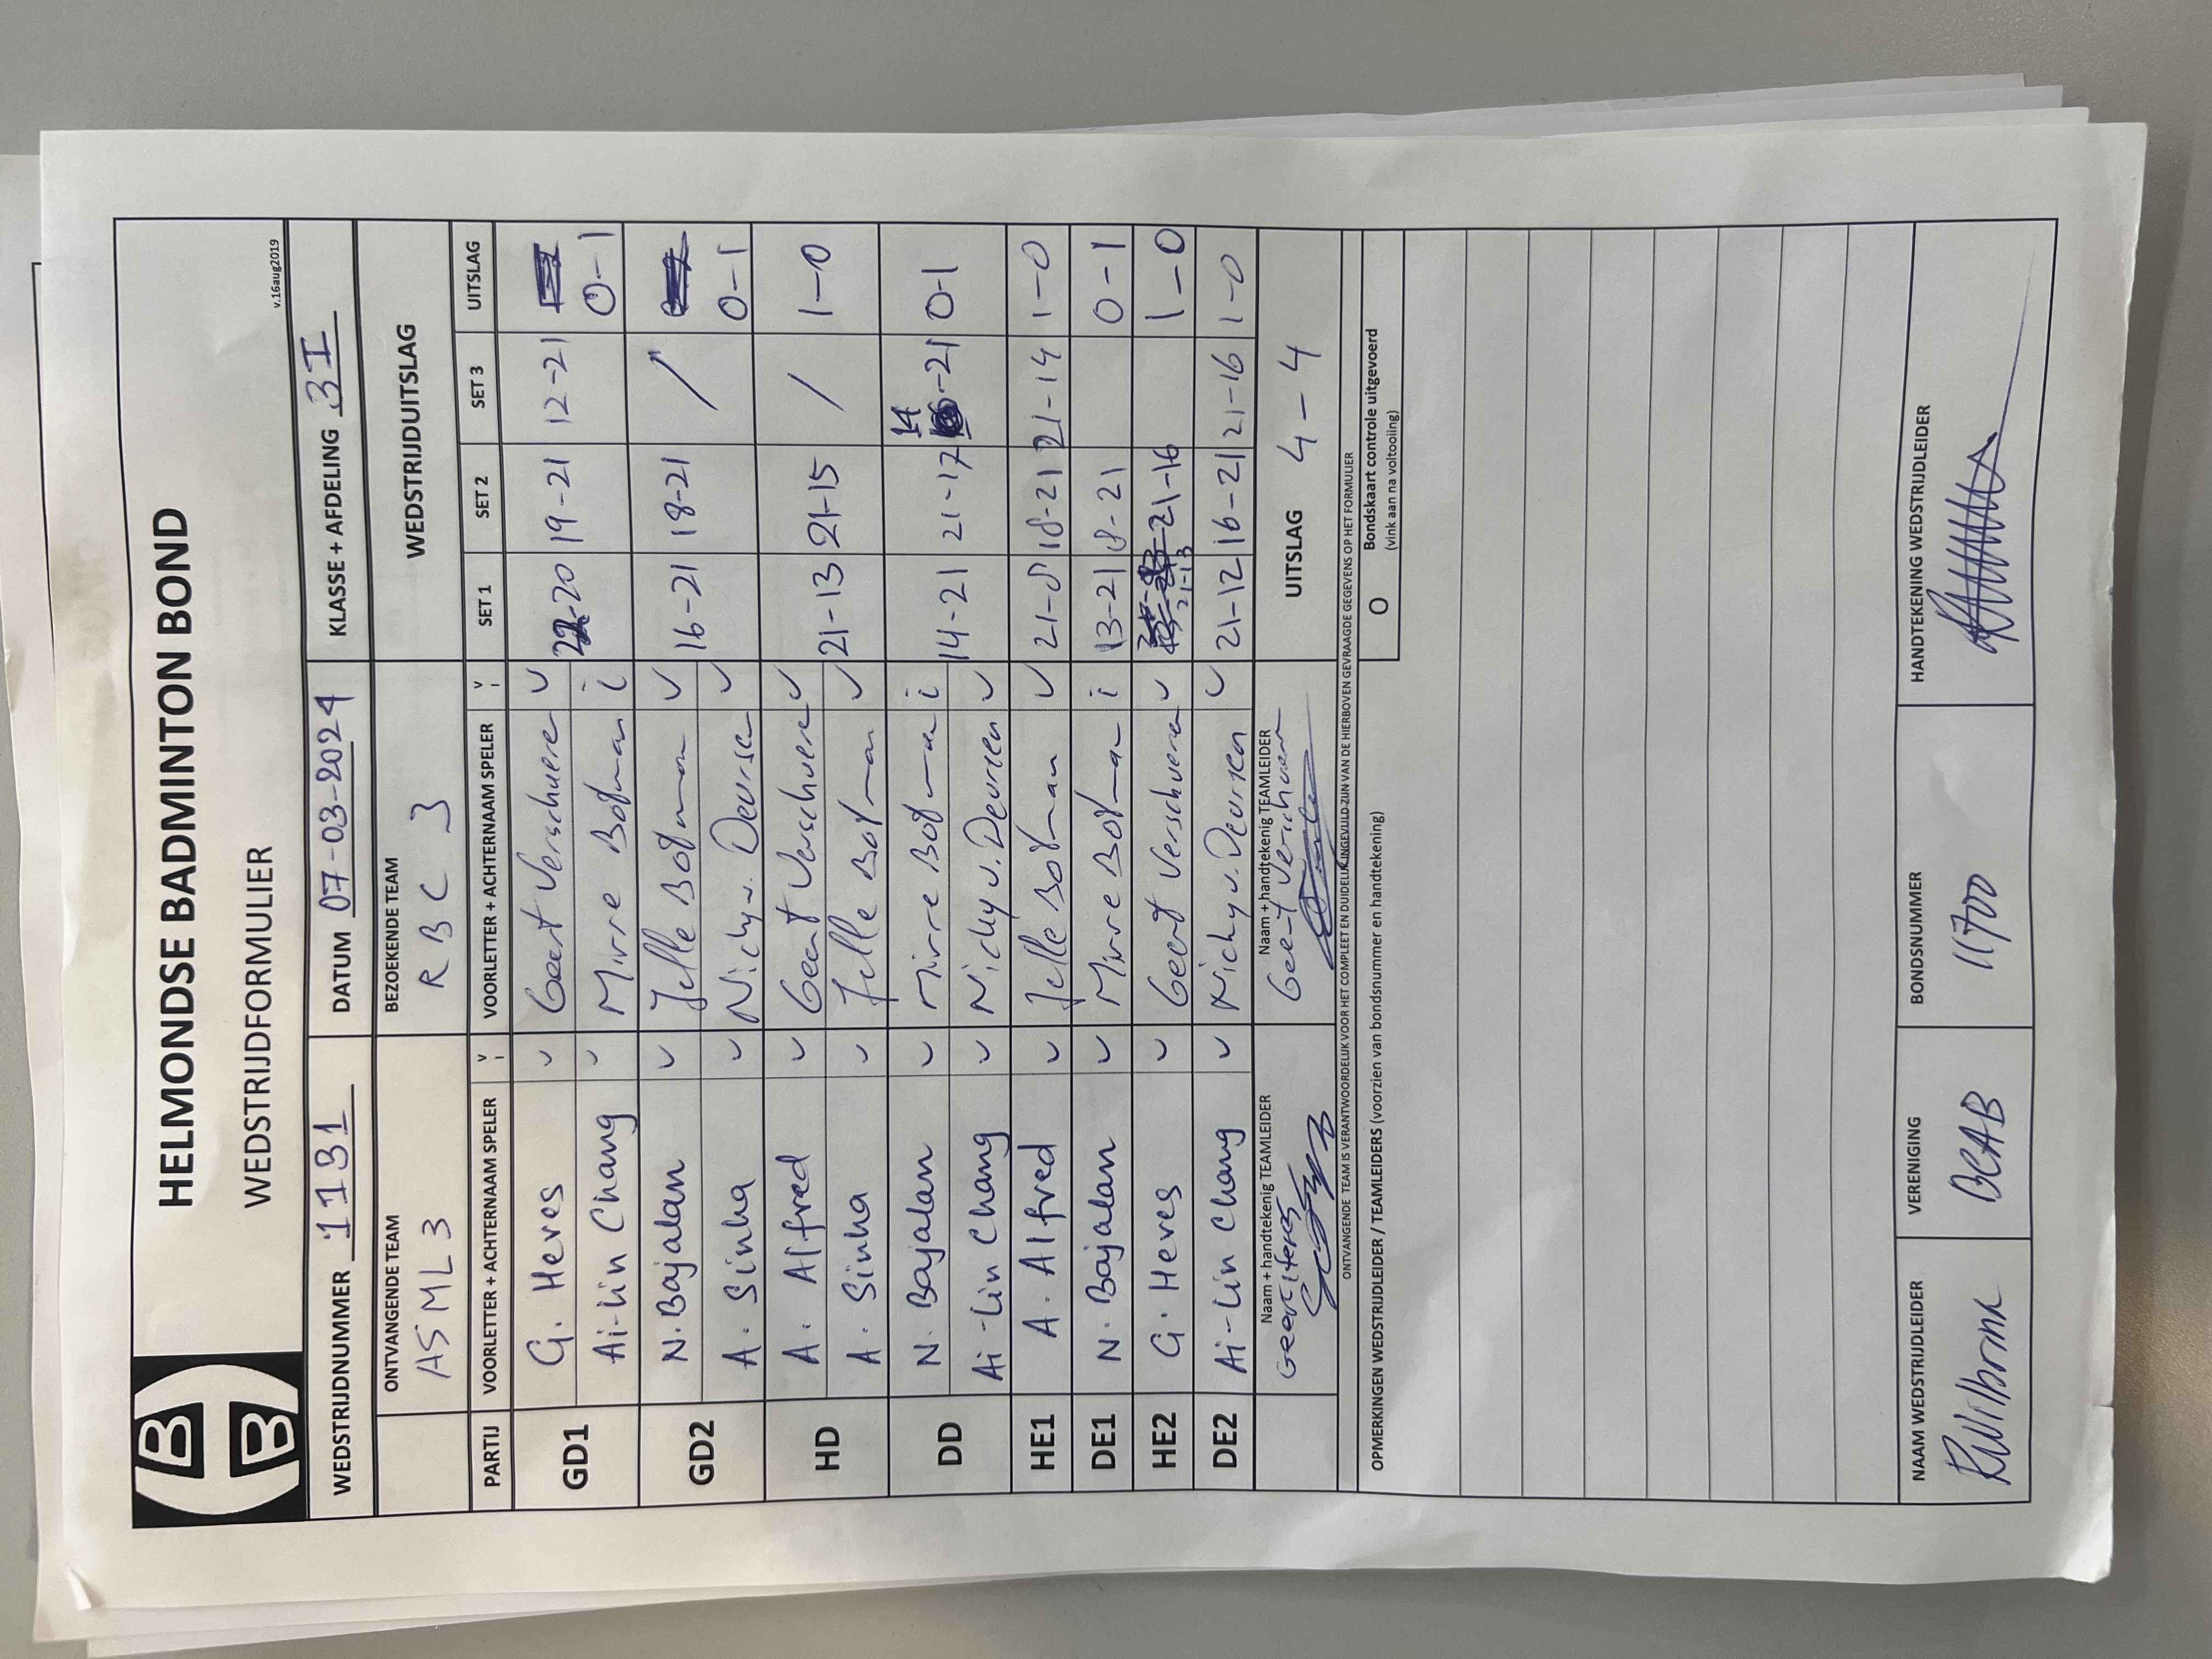 B
B
HELMONDSE BADMINTON BOND
WEDSTRIJDFORMULIER
v.16aug2019
WEDSTRIJDNUMMER 11131 DATUM 07-03-2024 KLASSE + AFDELING 3I
ONTVANGENDE TEAM BEZOEKENDE TEAM WEDSTRIJDUITSLAG
ASML 3 RBC 3
PARTIJ VOORLETTER + ACHTERNAAM SPELER V i VOORLETTER + ACHTERNAAM SPELER V i SET 1 SET 2 SET 3 UITSLAG
GD1 G. Heres v Geert Verschuere v 22-20 19-21 12-21 0-1
Ai-Lin Chang v Mirre Botman i
GD2 N. Bajalan v Jelle Botman v 16-21 18-21 / 0-1
A. Sinha v Nichy v. Deursen v
HD A. Alfred v Geert Verschuere v 21-13 21-15 / 1-0
A. Sinha v Jelle Botman v
DD N. Bajalan v Mirre Botman i 14-21 21-17 14-21 0-1
Ai-Lin Chang v Nichy v. Deursen v
HE1 A. Alfred v Jelle Botman v 21-8 18-21 21-14 1-0
DE1 N. Bajalan v Mirre Botman i 13-21 8-21 0-1
HE2 G. Heres v Geert Verschueren v 21-13 21-16 1-0
DE2 Ai-Lin Chang v Nichy v. Deursen v 21-12 16-21 21-16 1-0
Naam + handtekenig TEAMLEIDER Naam + handtekenig TEAMLEIDER UITSLAG 4-4
Geert Verschueren
ONTVANGENDE TEAM IS VERANTWOORDELIJK VOOR HET COMPLEET EN DUIDELIJK INGEVULD ZIJN VAN DE HIERBOVEN GEVRAAGDE GEGEVENS OP HET FORMULIER
OPMERKINGEN WEDSTRIJDLEIDER / TEAMLEIDERS (voorzien van bondsnummer en handtekening)
O Bondskaart controle uitgevoerd
(vink aan na voltooling)
NAAM WEDSTRIJDLEIDER VERENIGING BONDSNUMMER HANDTEKENING WEDSTRIJDLEIDER
R Wilbrink BCAB 11700